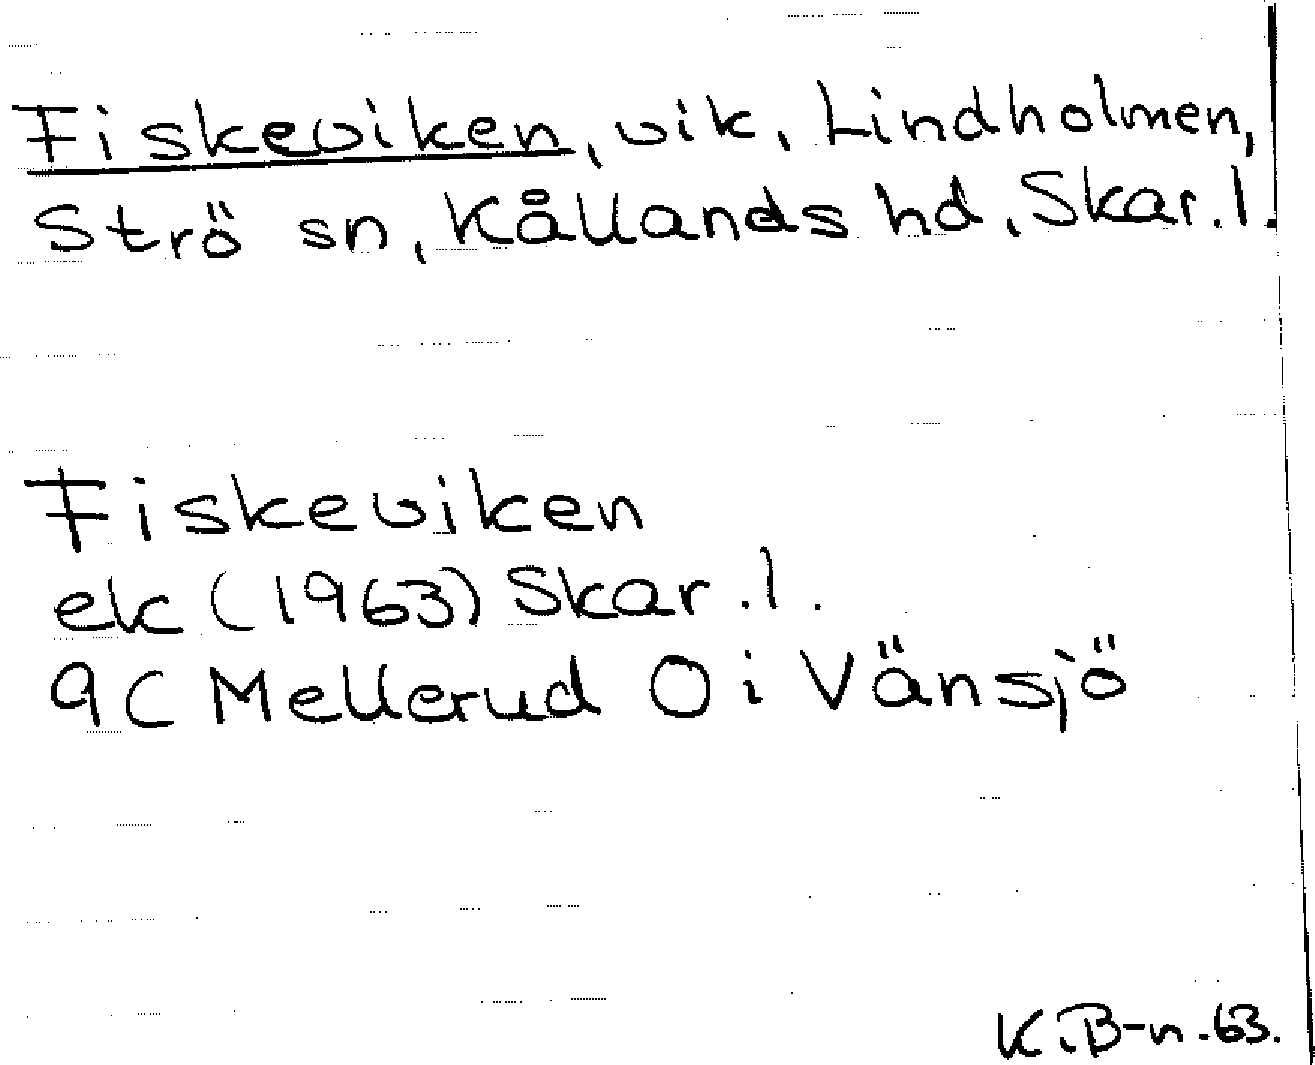 Fiskeviken, vik, Lindholmen,
Strö sn, Kållands hd, Skar. l.
Fiskeviken
ek (1963) Skar. l.
9C Mellerud O i Vänsjö
K.B-n. 63.